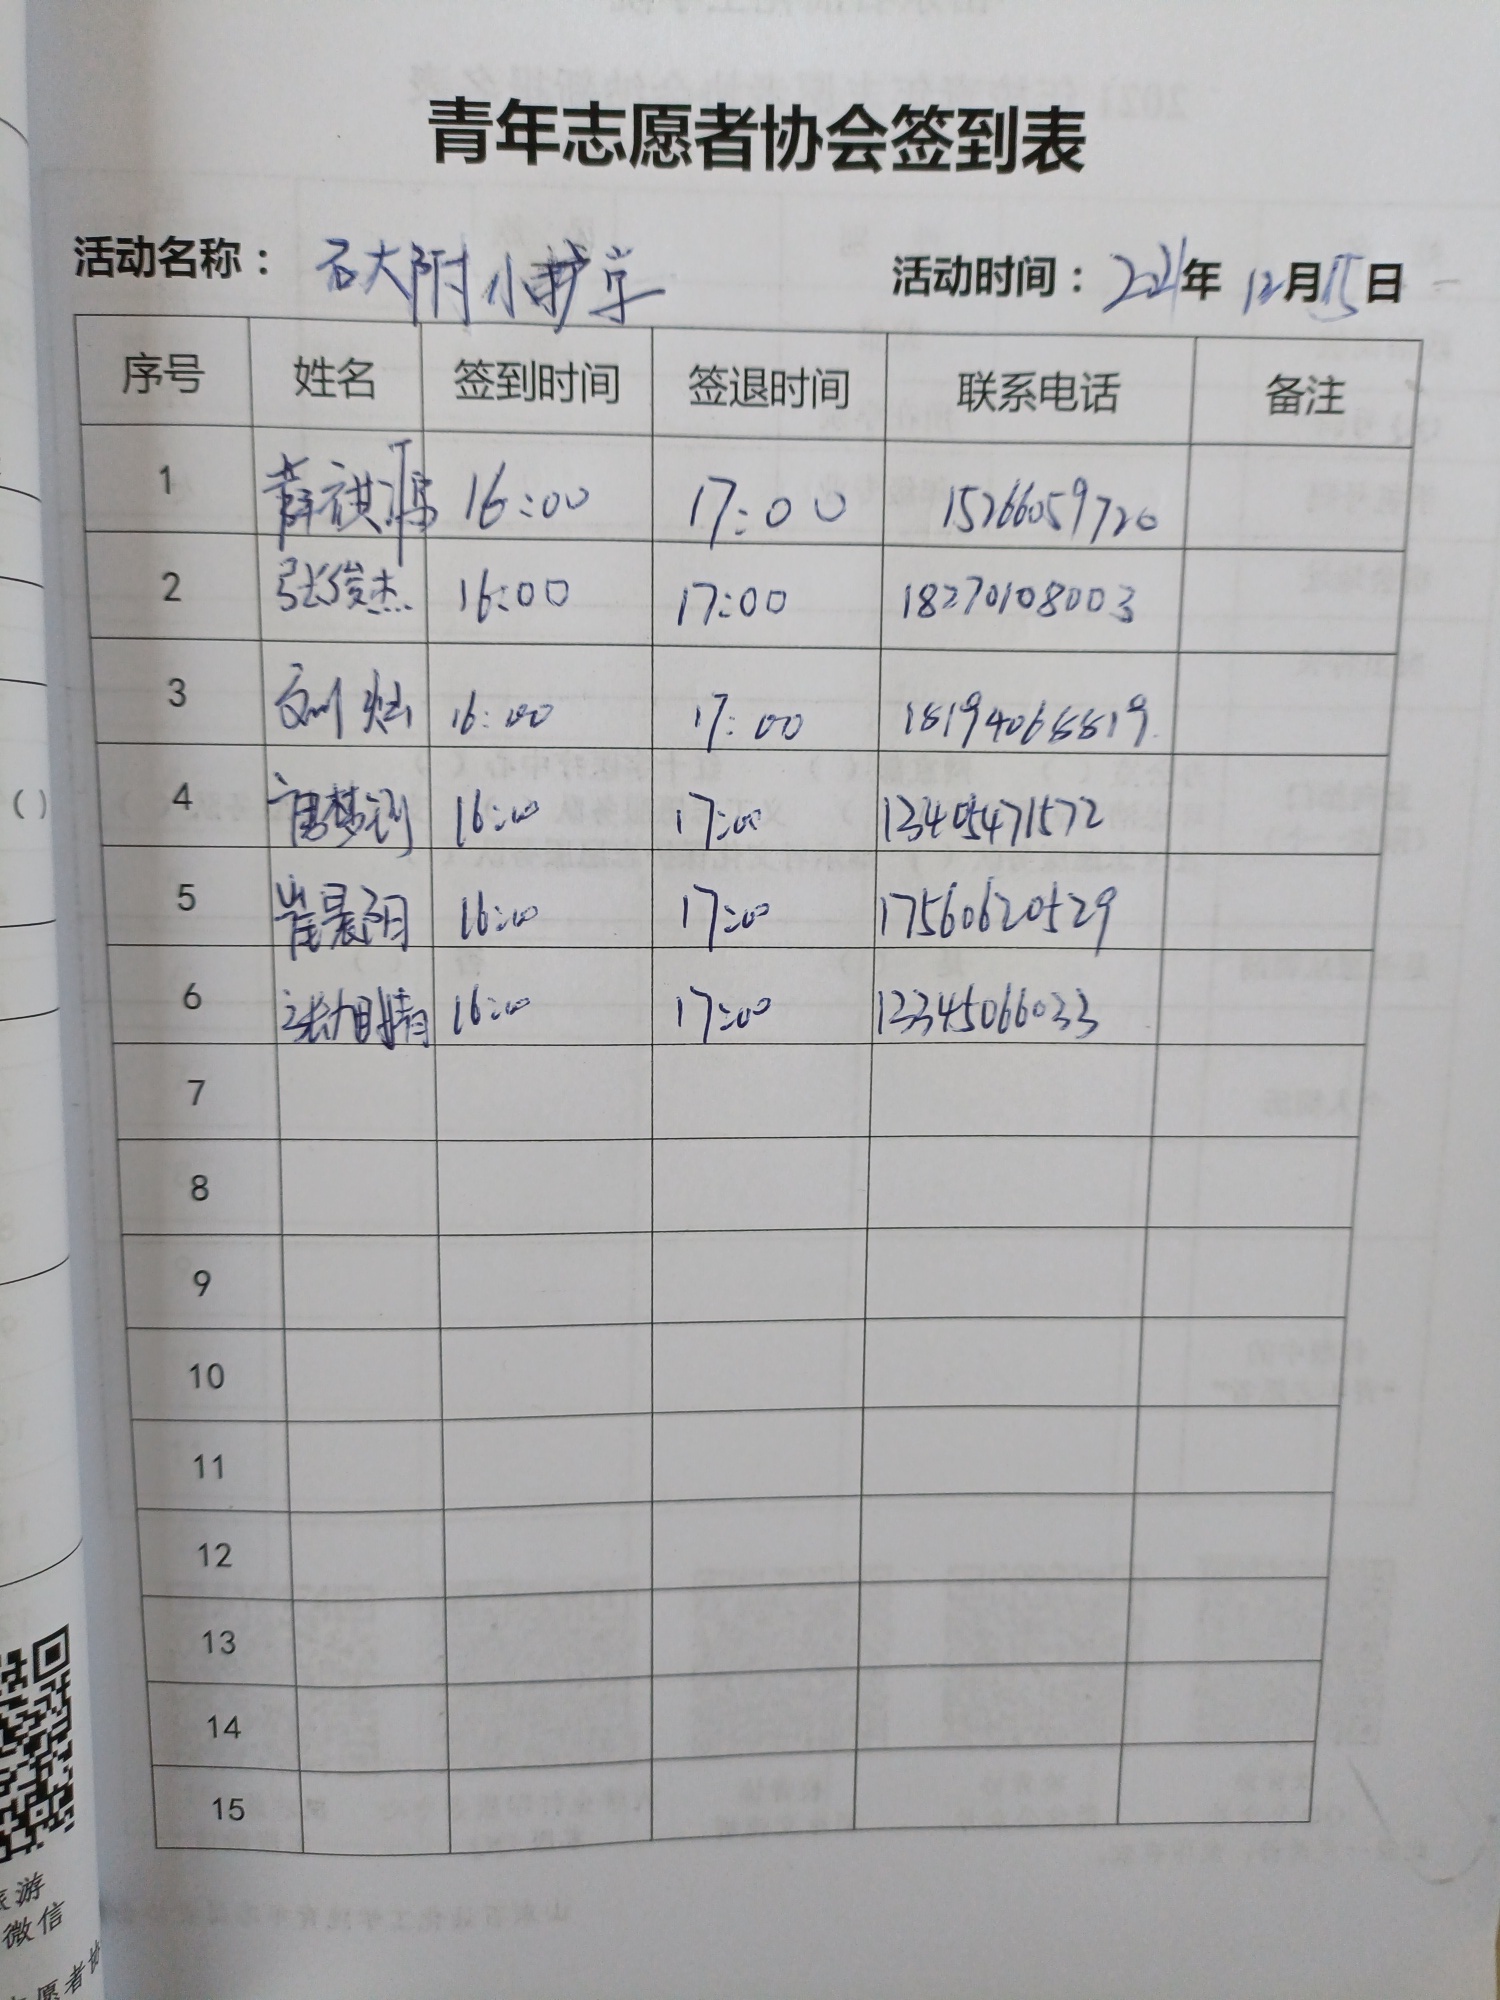 青年志愿者协会签到表
活动名称： 石大附小护学 活动时间： 2021年 12月15日
序号 姓名 签到时间 签退时间 联系电话 备注
1 薛祺 16:00 17:00 15266059720
2 张俊杰 16:00 17:00 18270108003
3 刘灿 16:00 17:00 18194068819
4 唐梦 16:00 17:00 13405471572
5 崔晨阳 16:00 17:00 17560620529
6 张旭晴 16:00 17:00 13345066033
7
8
9
10
11
12
13
14
15
( )
游
微信
愿者协